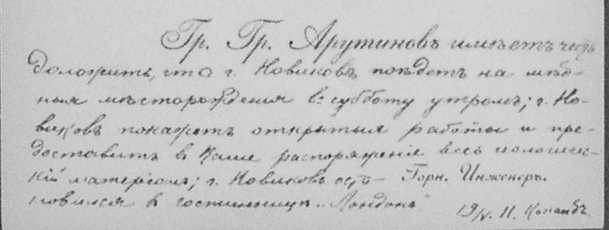 Гр. Гр. Арутиновъ имѣетъ честь
доложить, что г. Новиковъ поѣдетъ на мѣд-
ныя мѣсторожденія въ субботу утромъ; г. Но-
виковъ покажетъ открытыя работы и пре-
доставитъ въ Ваше распоряженіе весь геологичес-
кій матеріалъ; г. Новиковъ ост- Горн. Инженеръ.
новился в гостинницѣ "Лондонъ"
19